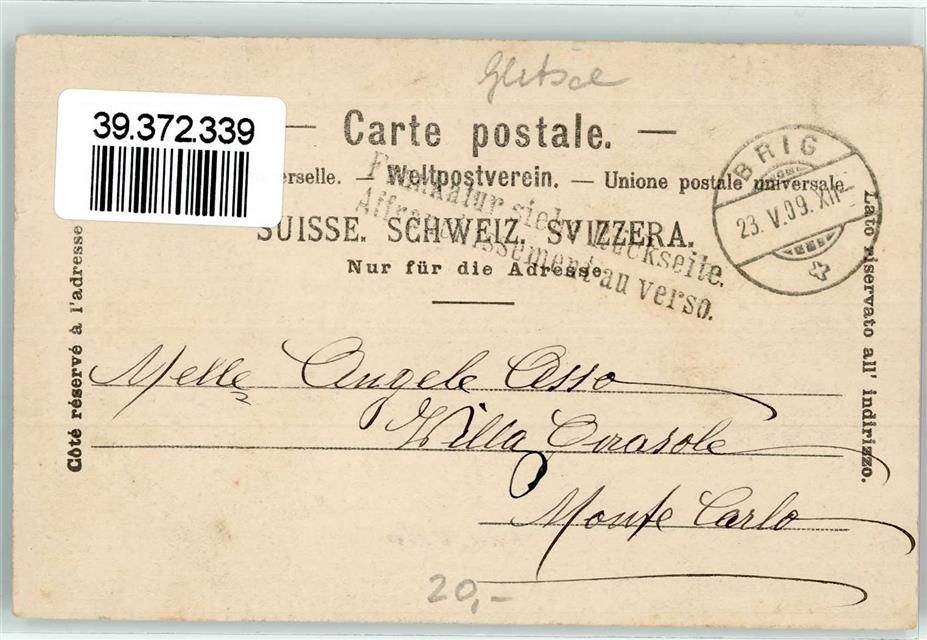 Gletsch
39.372.339
— Carte postale. —
erselle. — Weltpostverein. — Unione postale universale.
SUISSE. SCHWEIZ. SVIZZERA.
Nur für die Adresse
Frankatur siehe Rückseite.
Affranchissement au verso.
BRIG
23. V. 09. XII
Côté réservé à l'adresse
Lato riservato all' indirizzo.
Melle Angele Asso
Villa
Monte Carlo
20,-